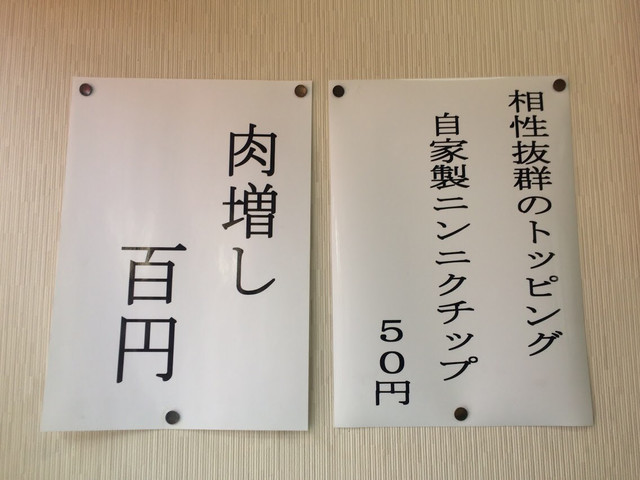 相性抜群のトッピング
自家製ニンニクチップ
５０円
肉増し
百円